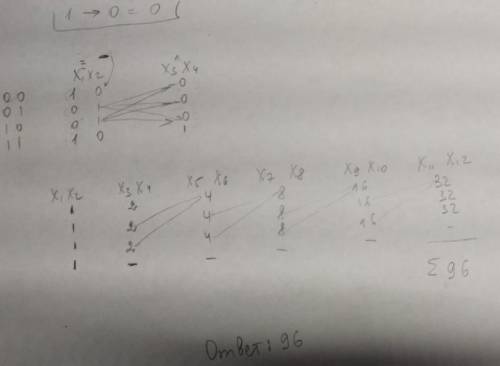 1 → 0 = 0
X₁ X₂ X₃ X₄
0 0 1 0 0
0 1 0 1 0
1 0 0 1 0
1 1 1 0 1
X₁ X₂ X₃ X₄ X₅ X₆ X₇ X₈ X₉ X₁₀ X₁₁ X₁₂
1 2 4 8 16 32
1 2 4 8 16 32
1 2 4 8 16 32
1 - - - - -
Σ 96
Ответ: 96